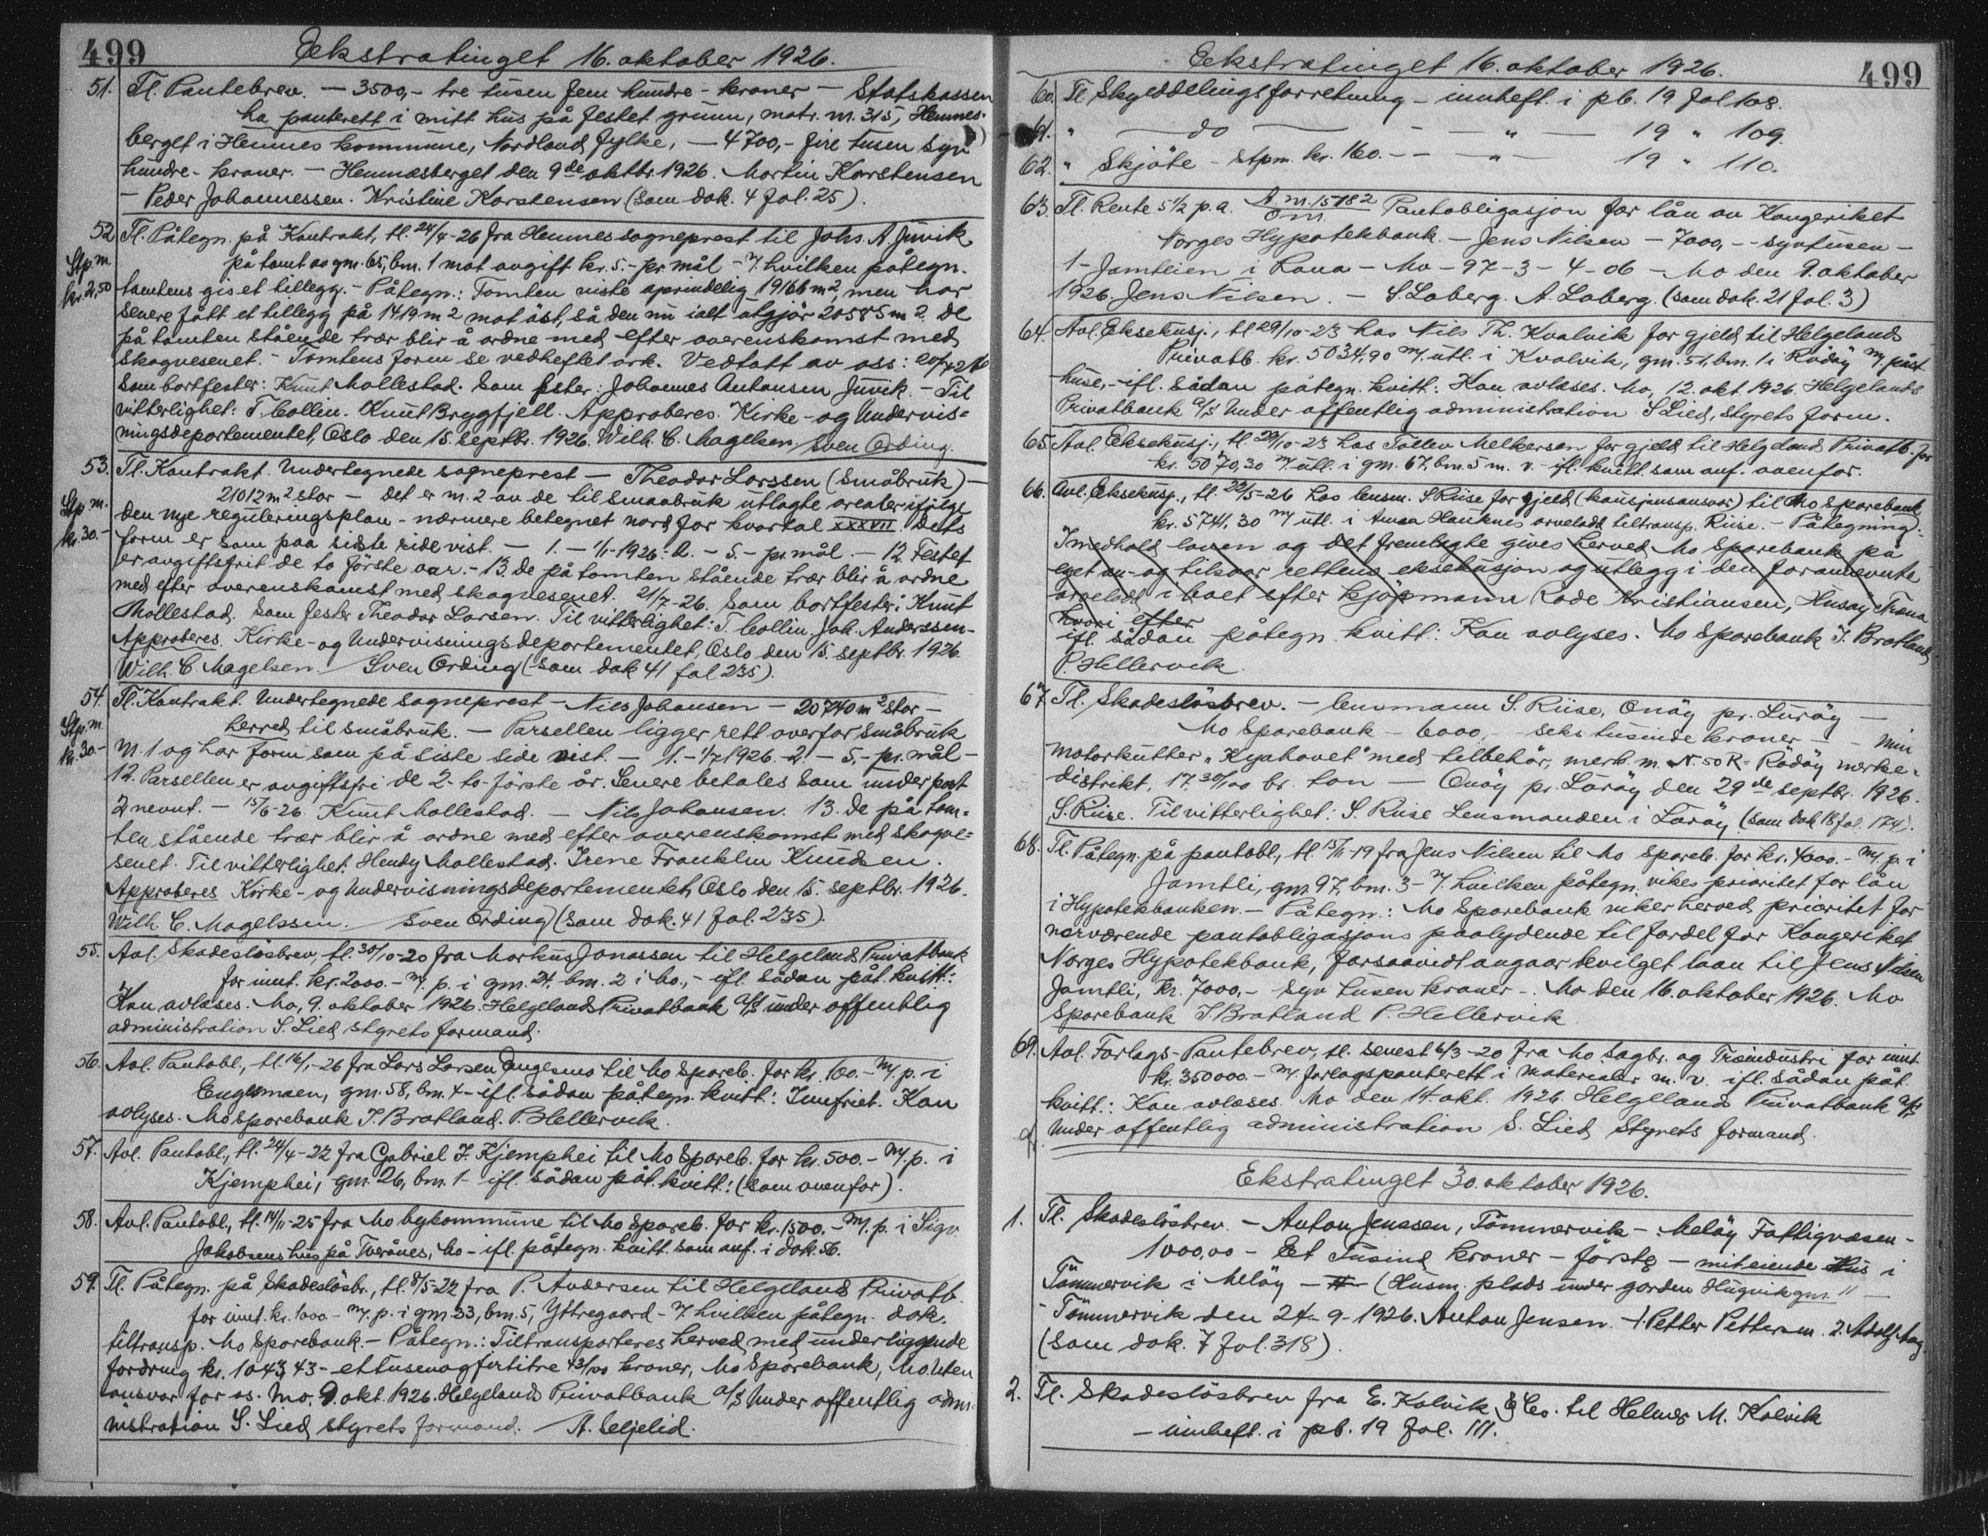 499
Eekstratinget 16. oktober 1926.
51. Tl. Pantebrev. — 3500,- tre tusen fem hundre - kroner — Statskassen
ha panterett i mitt hus på festet grunn, matr. nr. 315, Hemnes-
berget i Hemnes kommune, Nordland fylke, — 4700,- fire tusen syv
hundre - kroner. — Hemnesberget den 9de oktbr. 1926. Martin Karstensen
— Peder Johannessen. Kristine Karstensen (som dok. 4 fol. 25).
52. Tl. Påtegn. på Kontrakt, tl. 24/4-26 fra Hemnes sogneprest til Johs. A. Juvik
Stp.m.
kr. 2,50
på tomt av gm. 65, bm. 1 mot avgift kr. 5.- pr. mål - v/ hvilken påtegn.
tomtens gis et tillegg. - Påtegn.: Tomten viste oprindelig 19166 m2, men har
senere fått et tillegg på 1419 m2 mot øst, så den nu ialt utgjør 20585 m2. De
på tomten stående trær blir å ordne med efter overenskomst med
skogvesenet. - Tomtens form se vedheftet ark. Vedtatt av oss: 20/4 26
Som bortfester: Knut Mollestad. Som fester: Johannes Antonsen Juvik. - Til
vitterlighet: T. Collin. Knut Bryggfjell. Approberes. Kirke- og Undervis=
ningsdepartementet, Oslo den 15. septbr. 1926. Wilh. C. Magelsen / Sven Ording.
53. Tl. Kontrakt. Undertegnede sogneprest — Theodor Larssen (Småbruk) —
Stp.m.
kr. 30.-
21012 m2 stor — det er nr. 2 av de til smaabruk utlagte arealer ifølge
den nye reguleringsplan - nærmere betegnet nord for kvartal XXXVII dets
form er som paa siste side vist. — 1. — 1/1-1926: 2. - 5.- pr. mål. — 12. Festet
er avgiftsfrit de to første aar. - 13. De på tomten stående trær blir å ordne
med efter overenskomst med skogvesenet. 21/7-26. Som bortfester: Knut
Mollestad. Som fester Theodor Larsen. Til vitterlighet: T. Collin. Joh. Anderssen -
Approberes. Kirke- og Undervisningsdepartementet, Oslo den 15. septbr. 1926.
Wilh. C. Magelsen. / Sven Ording (som dok 41 fol 235).
54. Tl. Kontrakt. Undertegnede sogneprest — Nils Johansen — 20740 m2 stor —
Stp.m.
kr. 30.-
herred til småbruk. — Parsellen ligger rett overfor småbruk
nr. 1 og har form som på siste side vist. — 1. - 1/7 1926. 2. — 5.- pr. mål -
12. Parsellen er avgiftsfri de 2 - to - første år. Senere betales som under post
2 nevnt. — 15/6-26. Knut Mollestad. — Nils Johansen. 13. De på tom-
ten stående trær blir å ordne med efter overenskomst med skogve=
senet. Til vitterlighet: Hendy Mollestad. Irene Franklin Knudsen.
Approberes Kirke- og Undervisningsdepartementet, Oslo den 15. septbr. 1926.
Wilh. C. Magelssen. / Sven Ording (som dok. 41 fol. 235).
55. Avl. Skadesløsbrev, tl. 30/10-20 fra Markus Jonassen til Helgeland Privatbank
for innt. kr. 2000.- m/ p. i gm. 24, bm. 2 i Mo., - ifl. sådan påt. kvitt.:
Kan avlæses. Mo, 9. oktober 1926. Helgelands Privatbank a/s under offentlig
administration S. Lied styrets formand.
56. Avl. Pantobl., tl. 16/1-26 fra Lars Larsen Engesmo til Mo Spareb. for kr. 100.- m/ p. i
Engesmoen, gm. 58, bm. 4 - ifl. sådan påtegn. kvitt: Innfriet. Kan
avlyses. Mo Sparebank J. Bratland. P. Hellervik.
57. Avl. Pantobl., tl. 24/4-22 fra Gabriel J. Kjemphei til Mo Spareb. for kr. 500.- m/ p. i
Kjemphei, gm. 26, bm. 1 - ifl. sådan påt. kvitt.: (som ovenfor).
58. Avl. Pantobl., tl. 14/11-25 fra Mo bykommune til Mo Spareb. for kr. 1500.- m/ p. i Sigv.
Jakobsens hus på Tverånes, Mo - ifl. påtegn. kvitt. som anf. i dok. 56.
59. Tl. Påtegn. på Skadesløsbr., tl. 8/5-22 fra P. Andersen til Helgeland Privatb.
for innt. kr. 1000 - m/ p. i gm 33, bm. 5, Yttregaard - v/ hvilken påtegn. dok.
tiltransp. Mo Sparebank - Påtegn.: Tiltransporteres herved med underliggende
fordring kr. 1043,43 - ettusenogførtitre 43/100 kroner, Mo Sparebank, Mo. Uten
ansvar for os. Mo. 9 okt. 1926. Helgelands Privatbank a/s Under offentlig admi-
nistration S. Lied styrets formand. / A. Seljelid.
Eekstratinget 16. oktober 1926.
499
60. Tl. Skylddelingsforretning - innheft. i pb. 19 fol 108.
61. " — do — - " — 19 " 109.
62. " Skjøte - stpm. kr. 160. - - " - 19 " 110.
63. Tl. Rente 5 1/2 p.a. A nr. 15782 Pantobligasjon for lån av Kongeriket
Norges Hypotekbank. — Jens Nilsen — 7000,- - syvtusen -
1 - Jamtlien i Rana - Mo - 97 - 3 - 4 - 06 - Mo den 9. oktober
1926. Jens Nilsen. — S. Loberg. A. Loberg. (som dok. 21 fol. 3)
64. Avl. Eksekusj., tl 29/10-23 hos Nils Th. Kvalvik for gjeld til Helgelands
Privatb. kr. 5034,90 m/ utl. i Kvalvik, gm. 51, bm. 1 i Rødøy m/ påst.
huse, - ifl. sådan påtegn. kvitt: Kan avlæses. Mo, 12. okt 1926. Helgelands
Privatbank a/s Under offentlig administration S. Lied, styrets form.
65. Avl. Eksekusj., tl 29/10-23 hos Tollev Melkersen for gjeld til Helgeland Privatb. for
kr. 5070,30 m/ utl. i gm. 67, bm. 5 m. v. - ifl. kvitt som anf. ovenfor.
66. Avl. Eksekusj., tl. 22/5-26 hos lensm. S. Riise for gjeld (kausjonsansvar) til Mo Sparebank
kr. 5741.30 m/ utl. i Anna Hauknes arvelodd, tiltransp. Riise. - Påtegning:
I medhold loven og det fremlagte gives herved Mo Sparebank på
eget an- og tilsvar rettens eksekusjon og utlegg i den foranevnte
arvelodd i boet efter kjøpmann Rode Kristiansen, Husøy, Træna
hvori efter
ifl. sådan påtegn. kvitt: Kan avlyses. Mo Sparebank J. Bratland
P. Hellervik.
67. Tl. Skadesløsbrev. — lensmann S. Riise, Onøy pr. Lurøy —
Mo Sparebank - 6000,- - seks tusinde kroner - - min
motorkutter "Kyahavet" med tilbehør, merk. nr. N. 50 R. Rødøy merke=
distrikt, 17.30/100 br. ton — Onøy pr. Lurøy den 29de septbr. 1926.
S. Riise. Til vitterlighet: S. Riise Lensmanden i Lurøy (som dok 18 fol. 174).
68. Tl. Påtegn. på pantobl., tl. 15/11-19 fra Jens Nilsen til Mo Spareb. for kr. 4000.- m/ p. i
Jamtli, gm. 97, bm. 3 - v/ hvilken påtegn. vikes prioritet for lån
i Hypotekbanken. - Påtegn.: Mo Sparebank viker herved prioritet for
nærværende pantobligasjons paalydende til fordel for Kongeriket
Norges Hypotekbank, forsaavidt angaar bevilget laan til Jens Nilsen
Jamtli, kr. 7000,- syv tusen kroner -. Mo den 16. oktober 1926. Mo
Sparebank J. Bratland P. Hellervik.
69. Avl. Forlags-Pantebrev, tl. senest 6/3-20 fra Mo Sagbr. og Træindustri for innt.
kr. 350000.- m/ forlagspanterett i materialer m. v. ifl. sådan påt.
kvitt.: Kan avlæses. Mo den 14 okt. 1926. Helgelands Privatbank a/s
Under offentlig administration S. Lied Styrets formand.
Ekstratinget 30. oktober 1926.
1. Tl. Skadesløsbrev. - Anton Jenssen, Tømmervik - Meløy Fattigvæsen -
1000,00 - Et Tusind kroner - første - mit eiende Hus i
Tømmervik i Meløy - (Husm. plads under gorden Hugvik gm. 11 —
- Tømmervik den 24 - 9 - 1926. Anton Jensen. 1. Petter Petterson. 2. Adolf Aag
(som dok. 7 fol. 318).
2. Tl. Skadesløsbrev fra E. Kalvik & Co. til Helmer M. Kalvik
— innheft. i pb. 19 fol. 111.